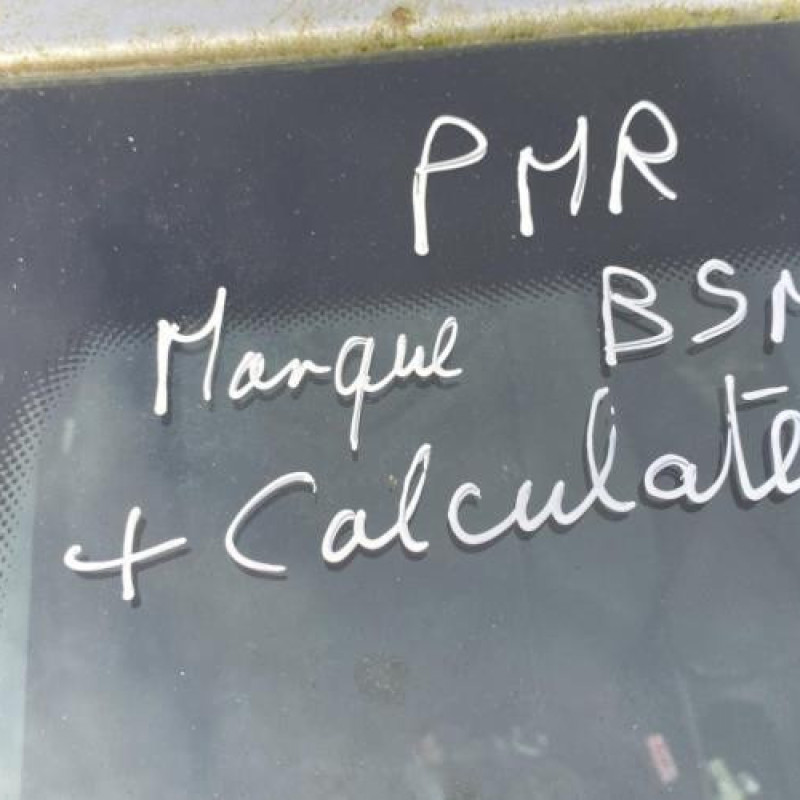 PMR
Marque BSM
+ Calculate